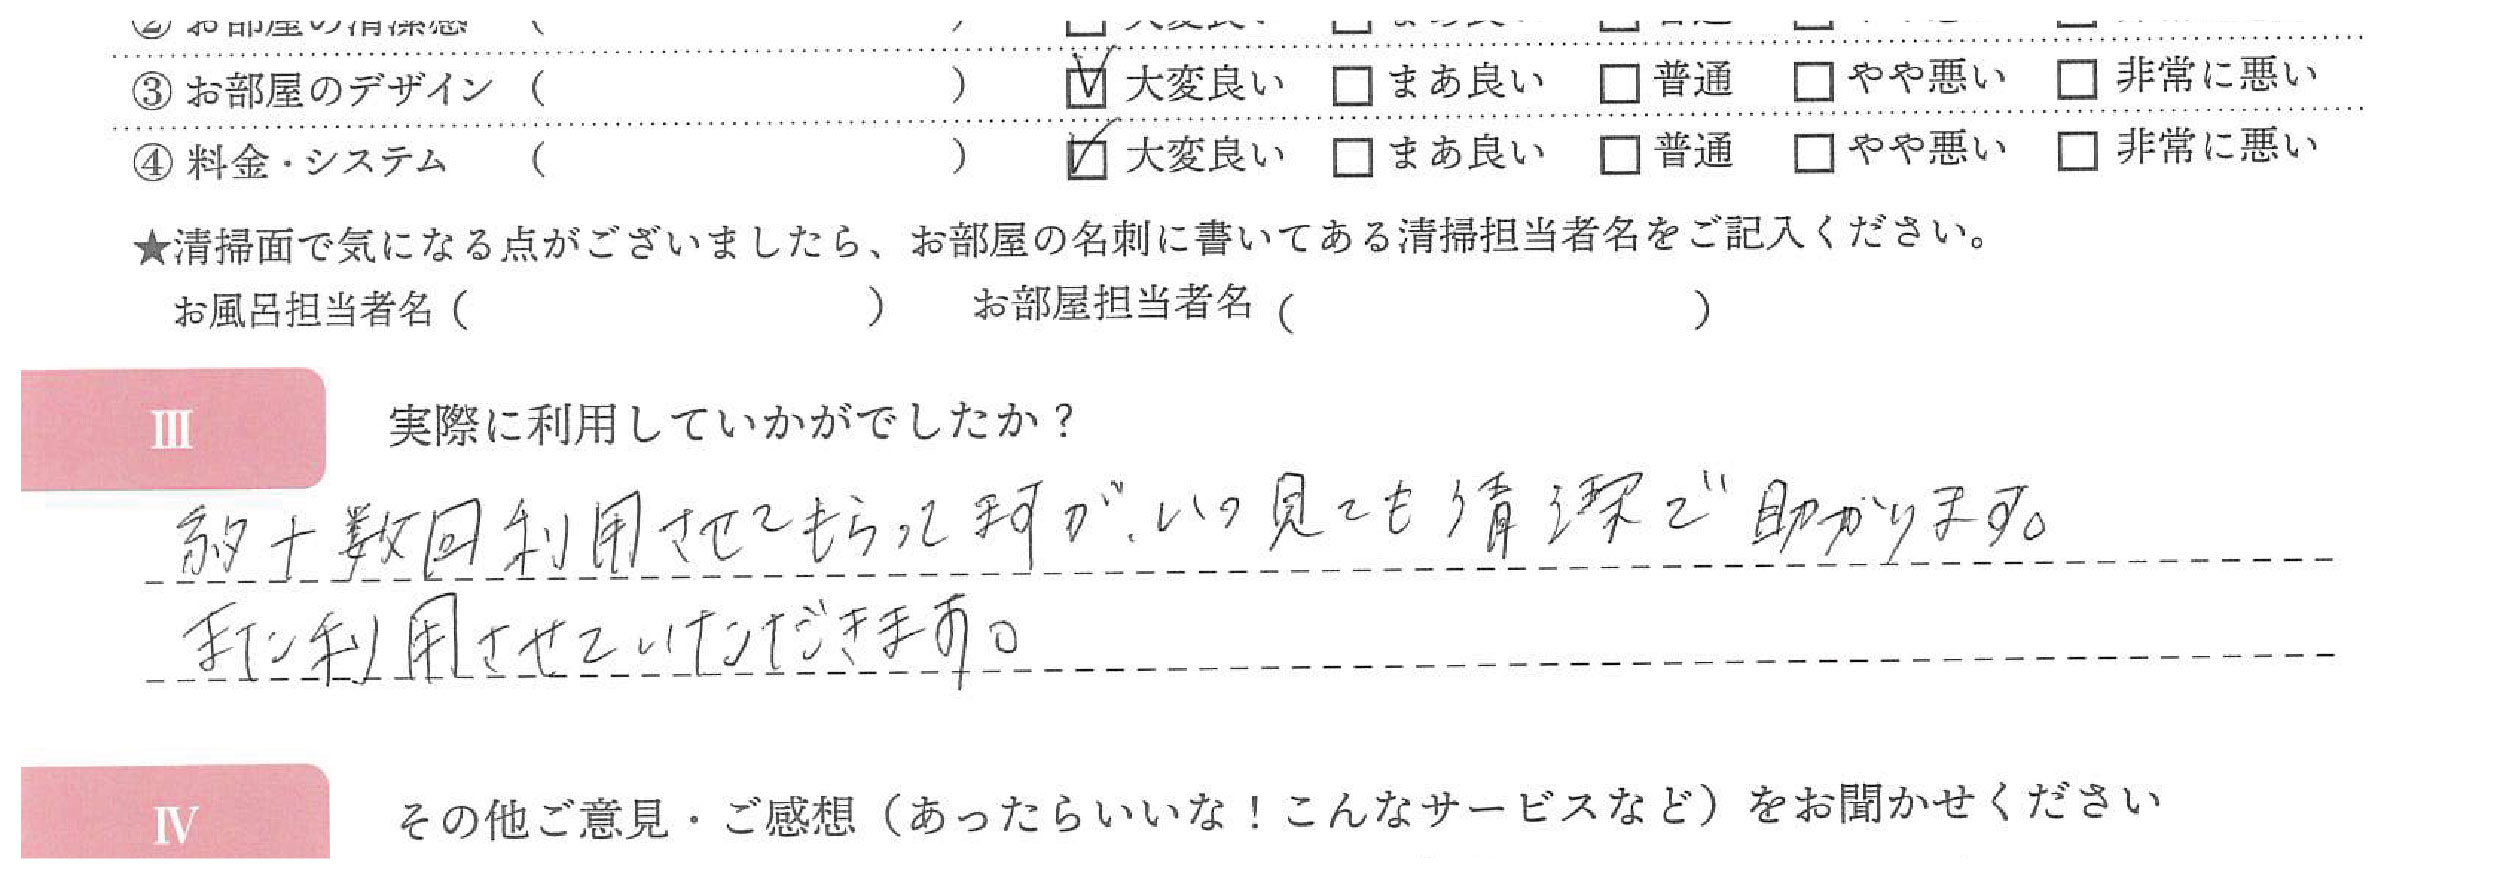 ② お部屋の清潔感 ( ) □ 大変良い □ まあ良い □ 普通 □ やや悪い □ 非常に悪い
③ お部屋のデザイン ( ) ☑ 大変良い □ まあ良い □ 普通 □ やや悪い □ 非常に悪い
④ 料金・システム ( ) ☑ 大変良い □ まあ良い □ 普通 □ やや悪い □ 非常に悪い
★清掃面で気になる点がございましたら、お部屋の名刺に書いてある清掃担当者名をご記入ください。
お風呂担当者名 ( ) お部屋担当者名 ( )
Ⅲ 実際に利用していかがでしたか？
十数回利用させてもらってますが、いつ見ても清潔で助かります。
また利用させていただきます。
Ⅳ その他ご意見・ご感想（あったらいいな！こんなサービスなど）をお聞かせください